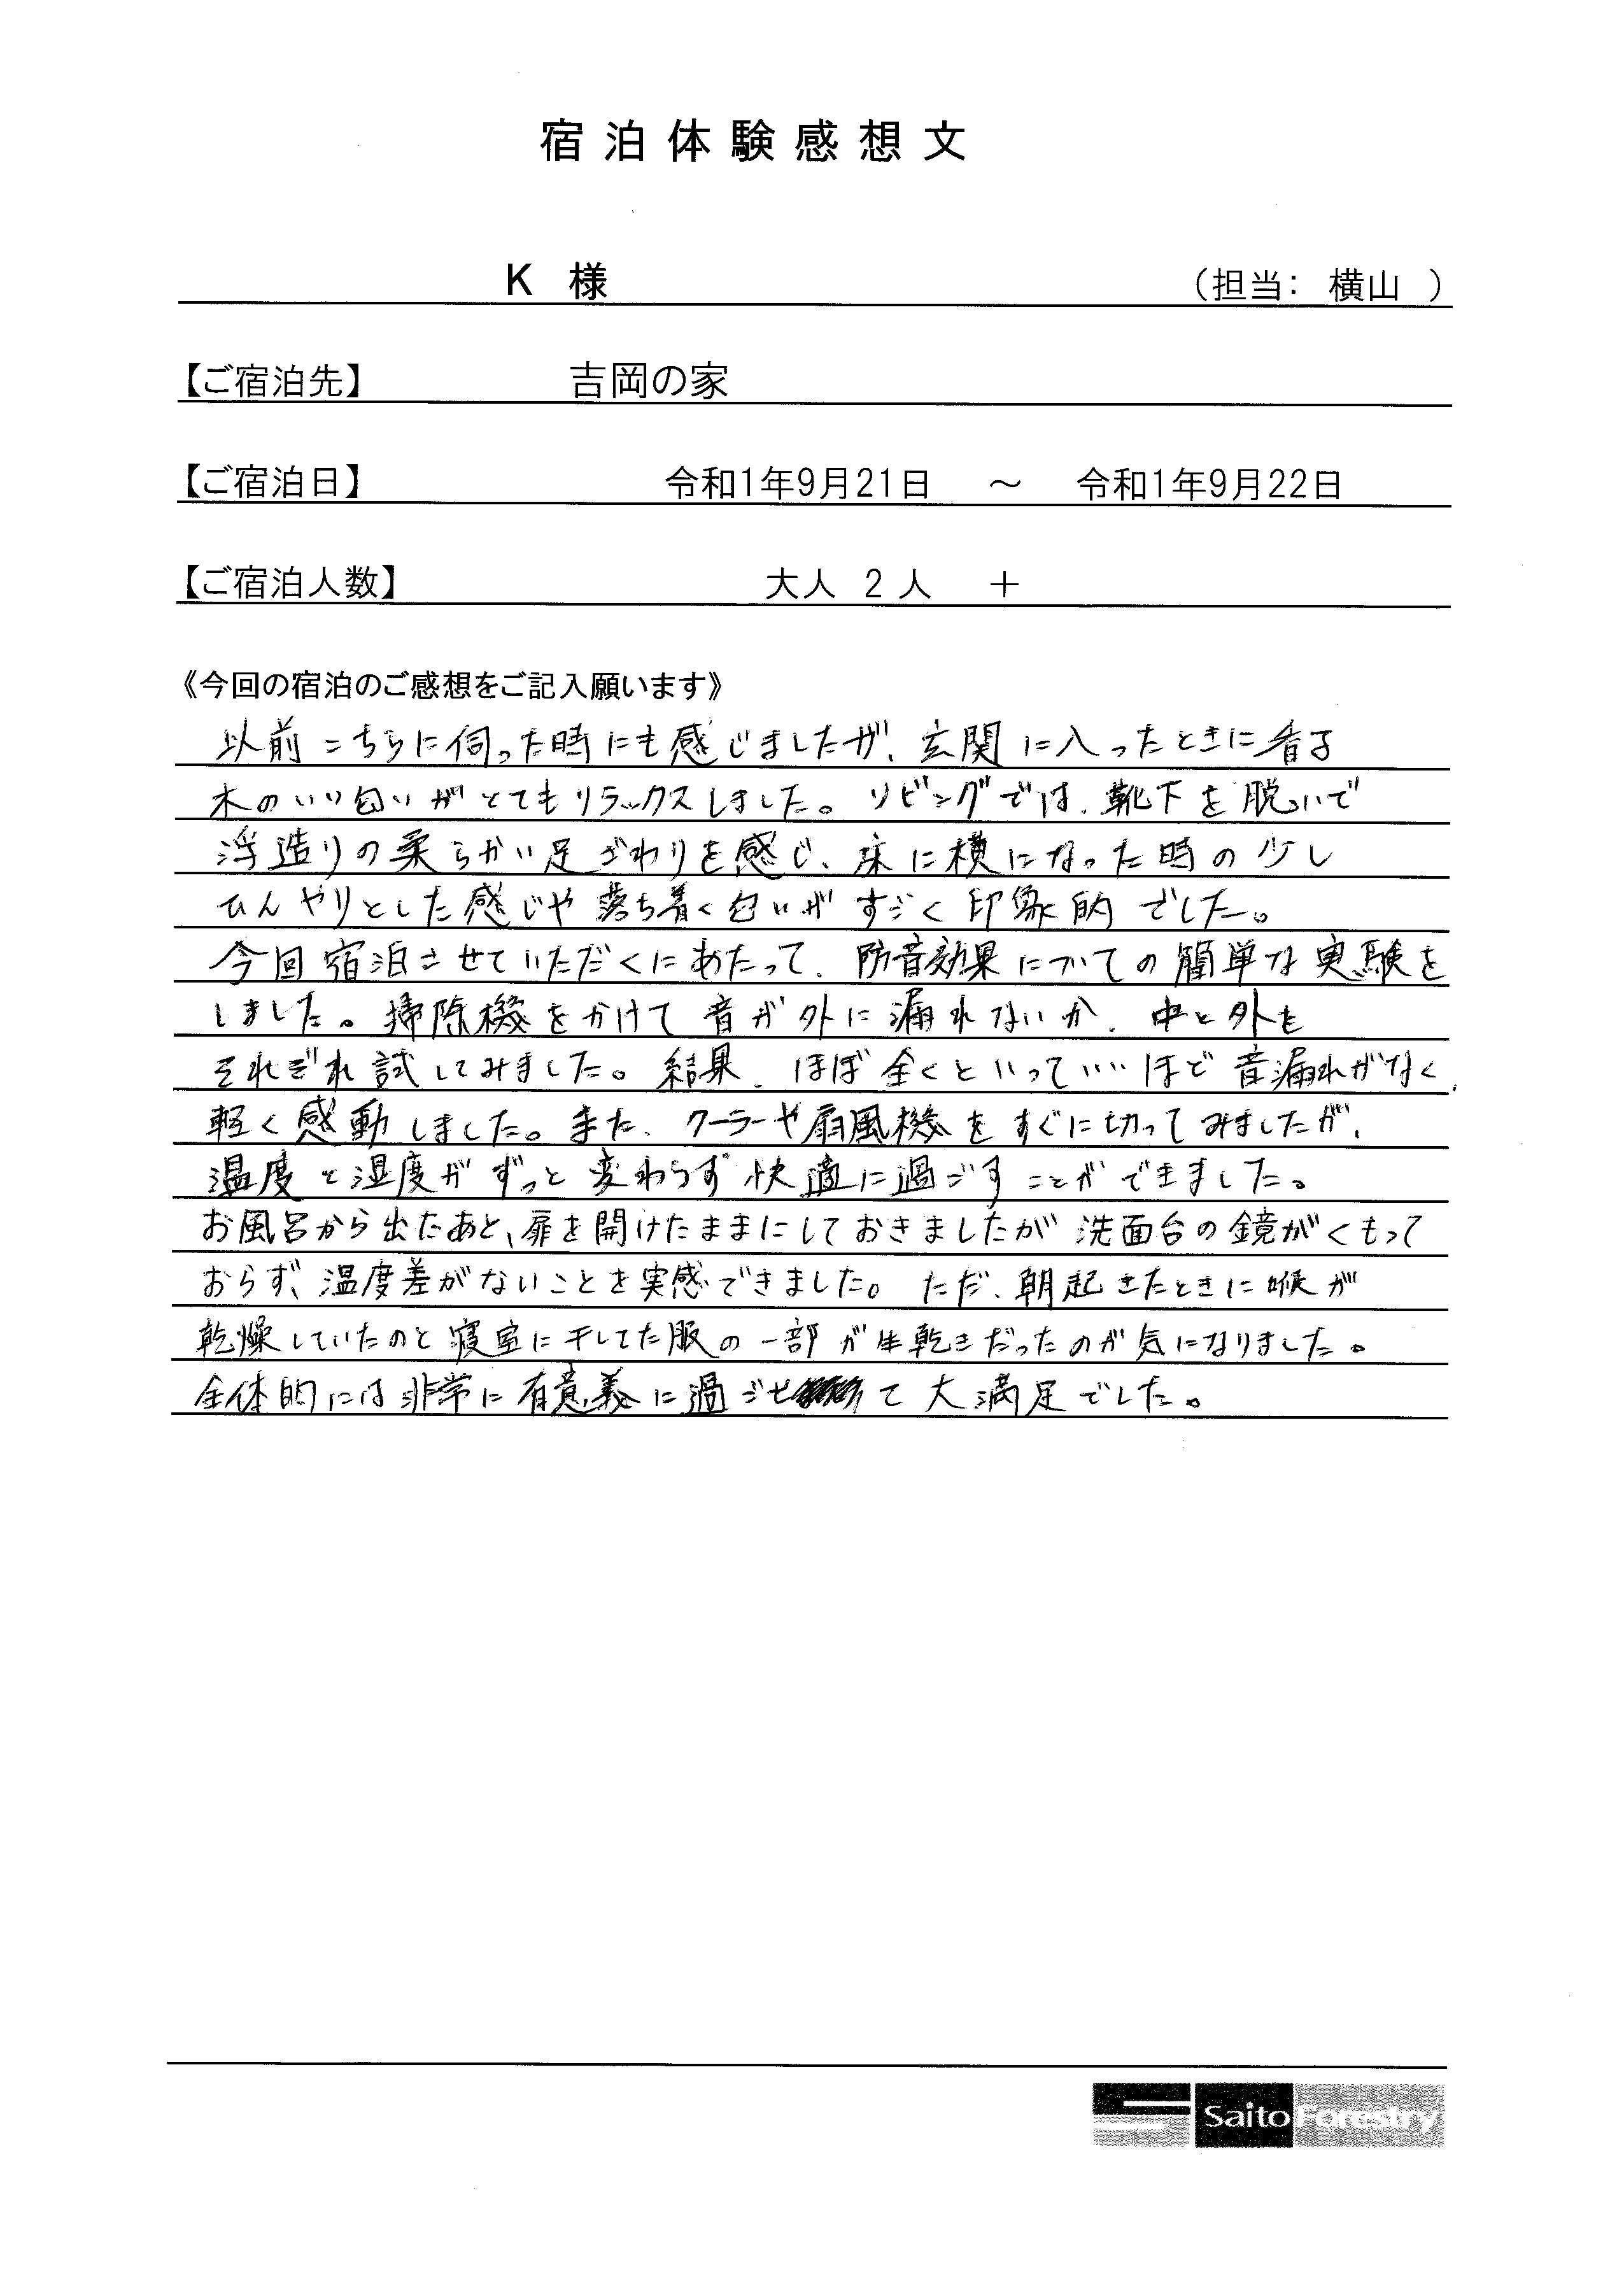 宿泊体験感想文
K 様 （担当： 横山 ）
【ご宿泊先】 吉岡の家
【ご宿泊日】 令和1年9月21日 ～ 令和1年9月22日
【ご宿泊人数】 大人 2 人 ＋
《今回の宿泊のご感想をご記入願います》
以前こちらに伺った時にも感じましたが、玄関に入ったときに香る
木のいい匂いがとてもリラックスしました。リビングでは、靴下を脱いで
浮造りの柔らかい足ざわりを感じ、床に横になった時の少し
ひんやりとした感じや落ち着く匂いがすごく印象的でした。
今回宿泊させていただくにあたって、防音効果についての簡単な実験を
しました。掃除機をかけて音が外に漏れないか、中と外を
それぞれ試してみました。結果、ほぼ全くといっていいほど音漏れがなく、
軽く感動しました。また、クーラーや扇風機をすぐに切ってみましたが、
温度と湿度がずっと変わらず快適に過ごすことができました。
お風呂から出たあと、扉を開けたままにしておきましたが洗面台の鏡がくもって
おらず、温度差がないことを実感できました。ただ、朝起きたときに喉が
乾燥していたのと寝室に干してた服の一部が生乾きだったのが気になりました。
全体的には非常に有意義に過ごせて大満足でした。
Saito Forestry